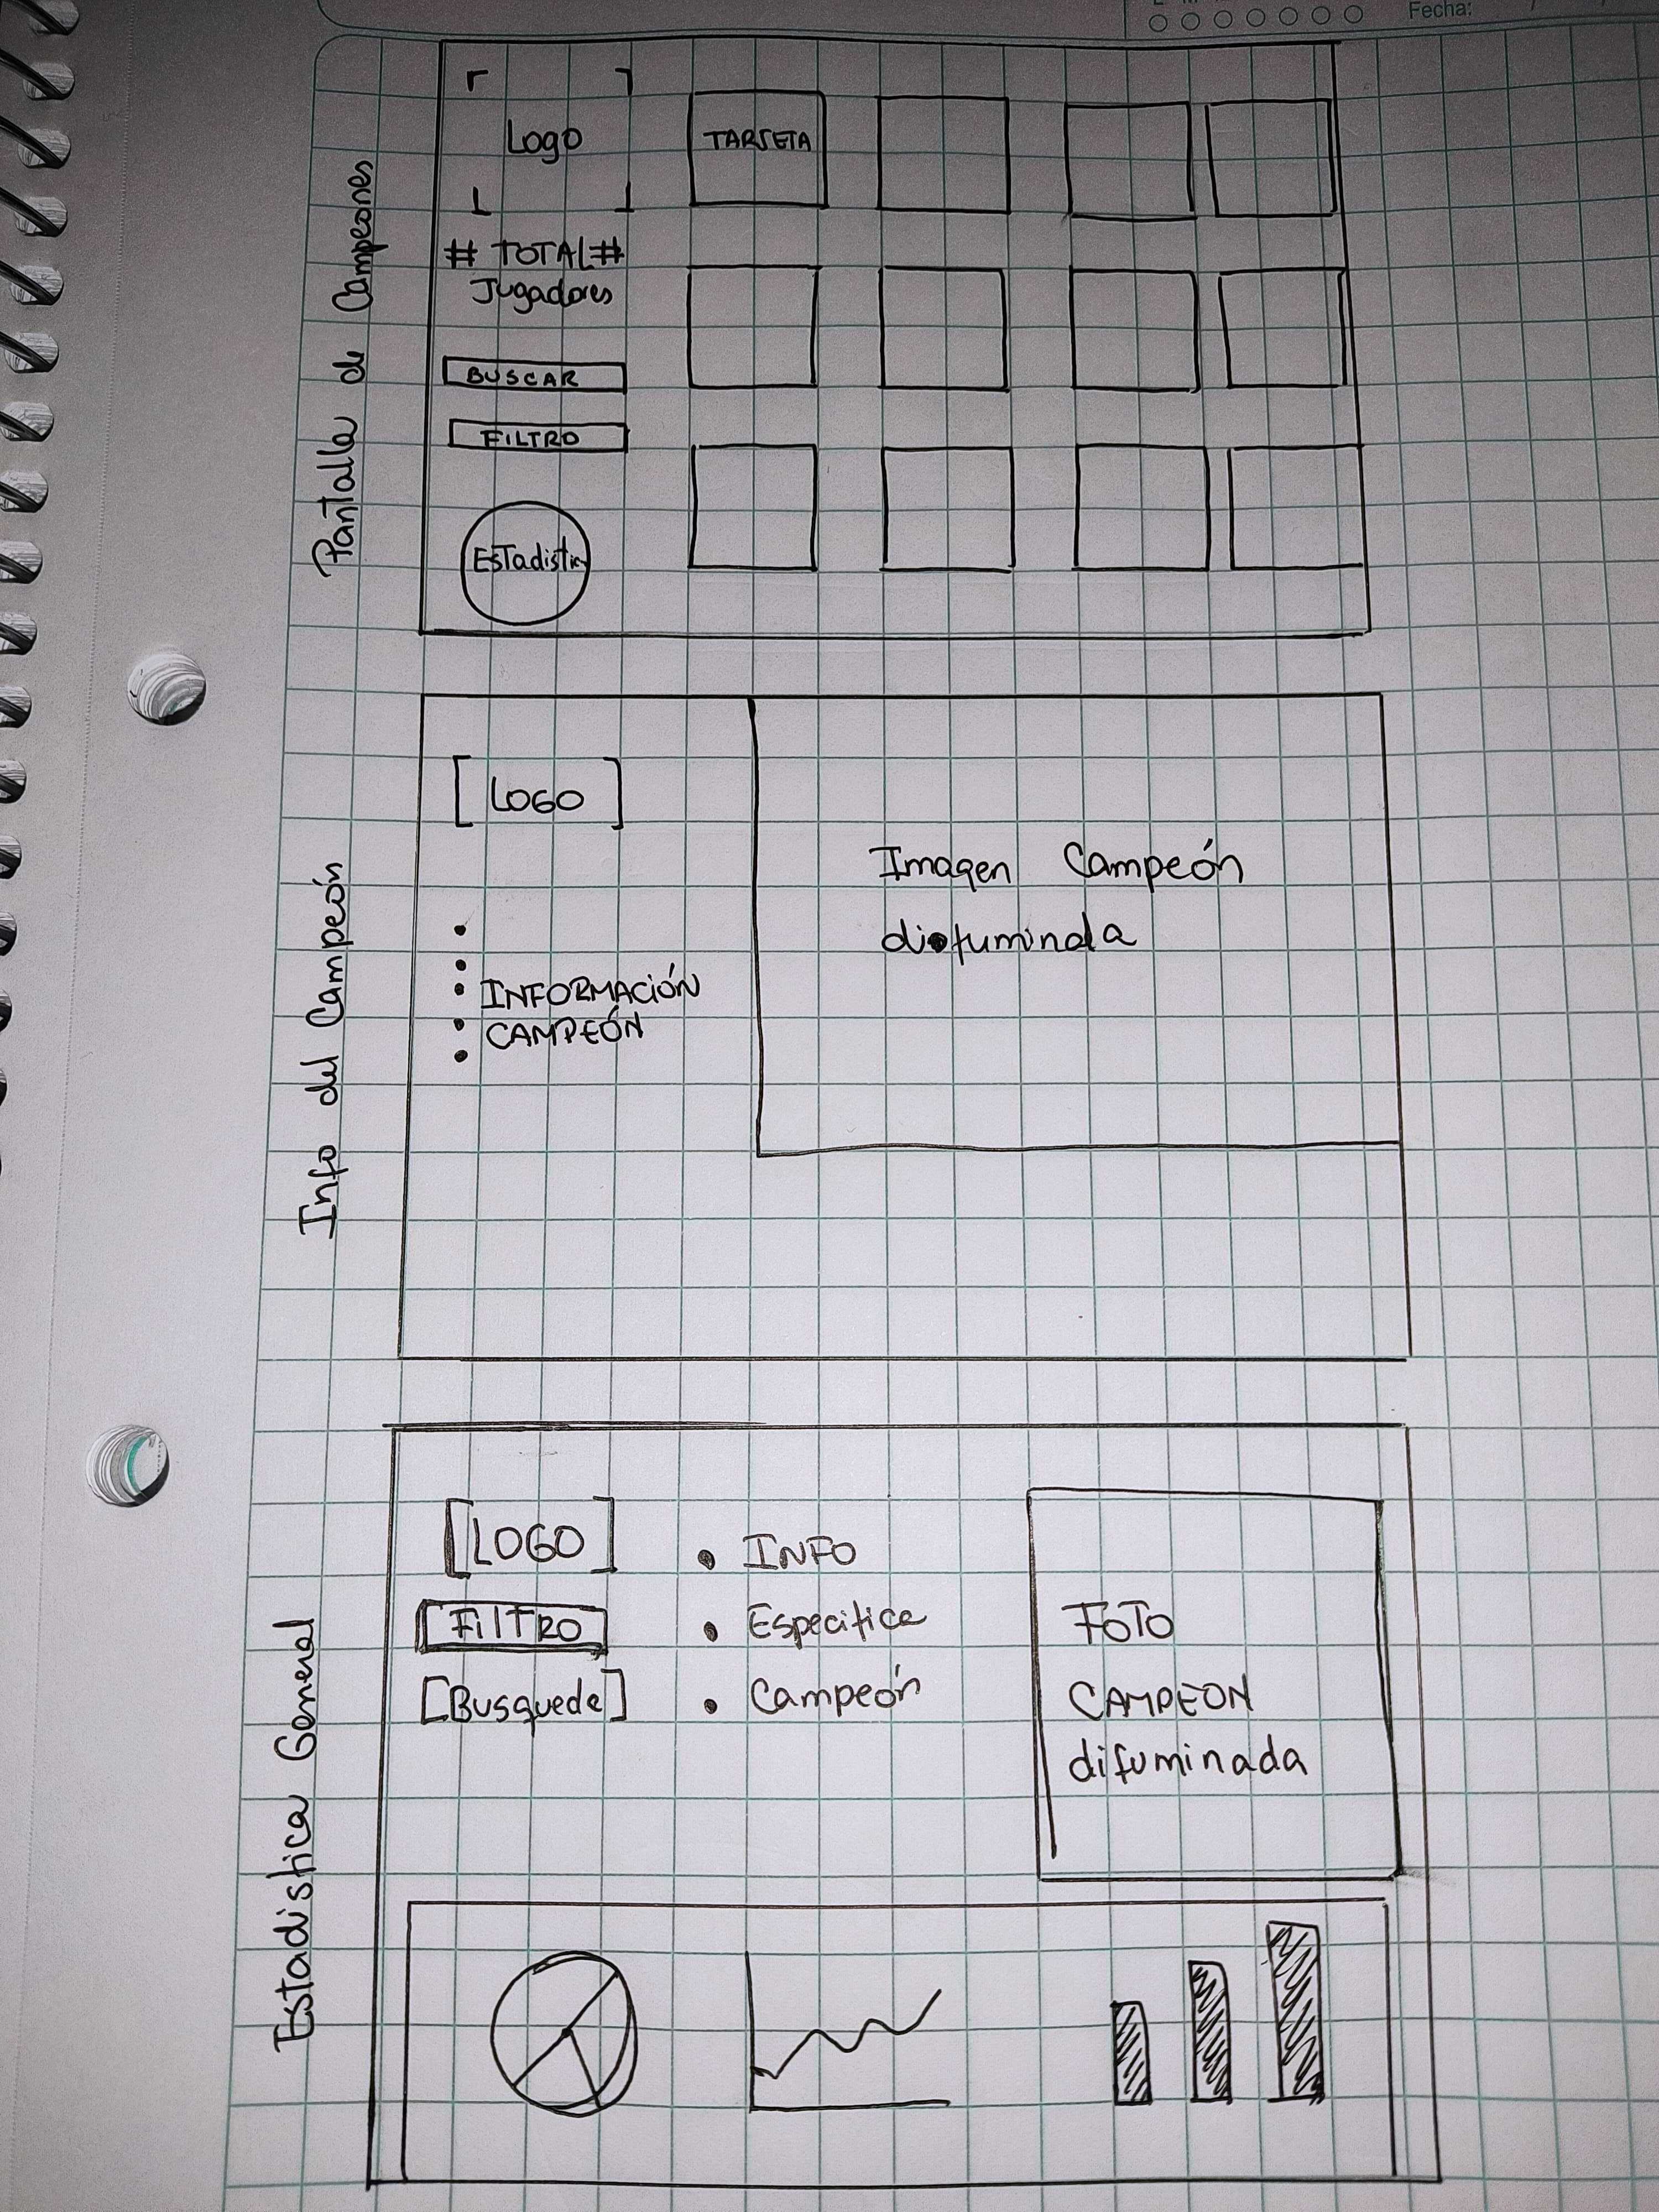 Fecha:
Pantalla de Campeones
Logo
TARJETA
# TOTAL #
Jugadores
BUSCAR
FILTRO
Estadistic
Info del Campeón
LOGO
Imagen Campeón
difuminada
INFORMACIÓN
CAMPEÓN
Estadistica General
[LOGO]
[FilTRO]
[Busqueda]
• INFO
• Especifica
• Campeón
FOTO
CAMPEON
difuminada